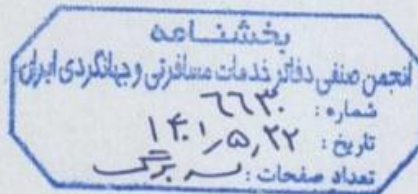 بخشنامه
انجمن صنفی دفاتر خدمات مسافرتی و جهانگردی ایران
شماره : ۶۶۳۰
تاریخ : ۱۴۰۱٫۵٫۲۲
تعداد صفحات : سه برگ